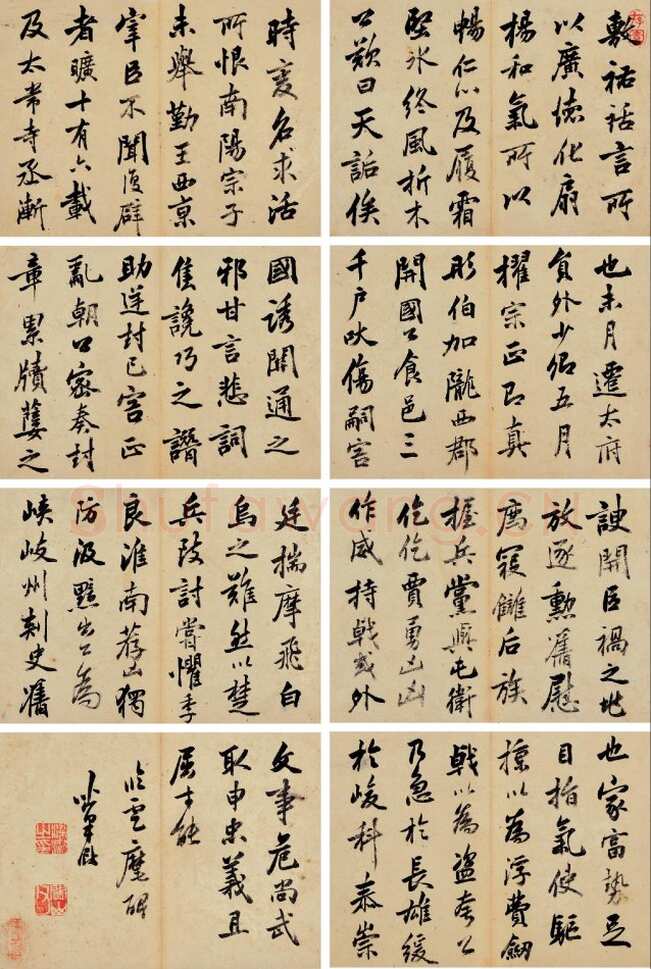 敷祐話言所
以廣德化扇
楊和氣所以
暢仁心及履霜
堅冰終風折木
公歎曰天詬俟
時变名求活
所恨南陽宗子
未舉勤王西京
宰臣不聞復辟
者曠十有六載
及太常寺丞漸
也未月遷太府
負外少卿五月
擢宗正即真
彤伯加隴西郡
開國公食邑三
千戶吠傷嗣害
國誘開通之
邪甘言悲詞
售讒巧之譖
助逆封己害正
亂朝公密奏封
章累牘萋之
諛開臣禍之地
放逐勳舊慰
薦寇讎后族
握兵黨與屯衛
仡仡賈勇凶凶
作威持戟或外
廷揣摩飛白
烏之難然以楚
兵陵討嘗懼季
良淮南荐凶獨
防汲黯出公為
峽岐州刺史舊
也家富勢足
目指氣使驅
掠以為浮費劒
戟以為盜夸公
乃急於長雄緩
於峻科泰崇
文事危尚武
取申忠義且
屈才能
臨雲麾碑
shufawang.CN